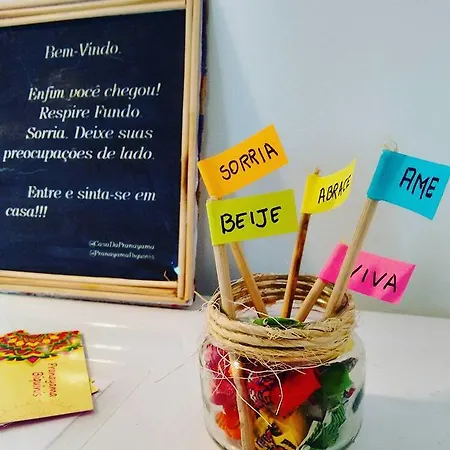 Bem-Vindo.
Enfim você chegou!
Respire Fundo.
Sorria. Deixe suas
preocupações de lado.
Entre e sinta-se em
casa!!!
@CasaDaPranayama
SORRIA
BEIJE
ABRACE
AME
VIVA
Pranayama